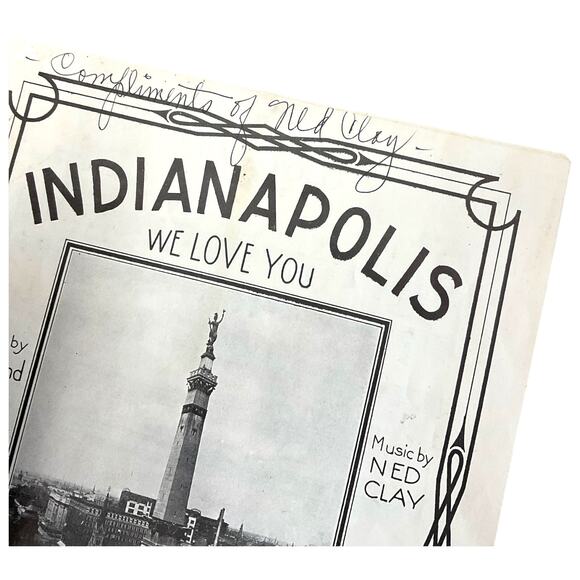 - Compliments of Ned Clay -
INDIANAPOLIS
WE LOVE YOU
by
Music by
NED
CLAY